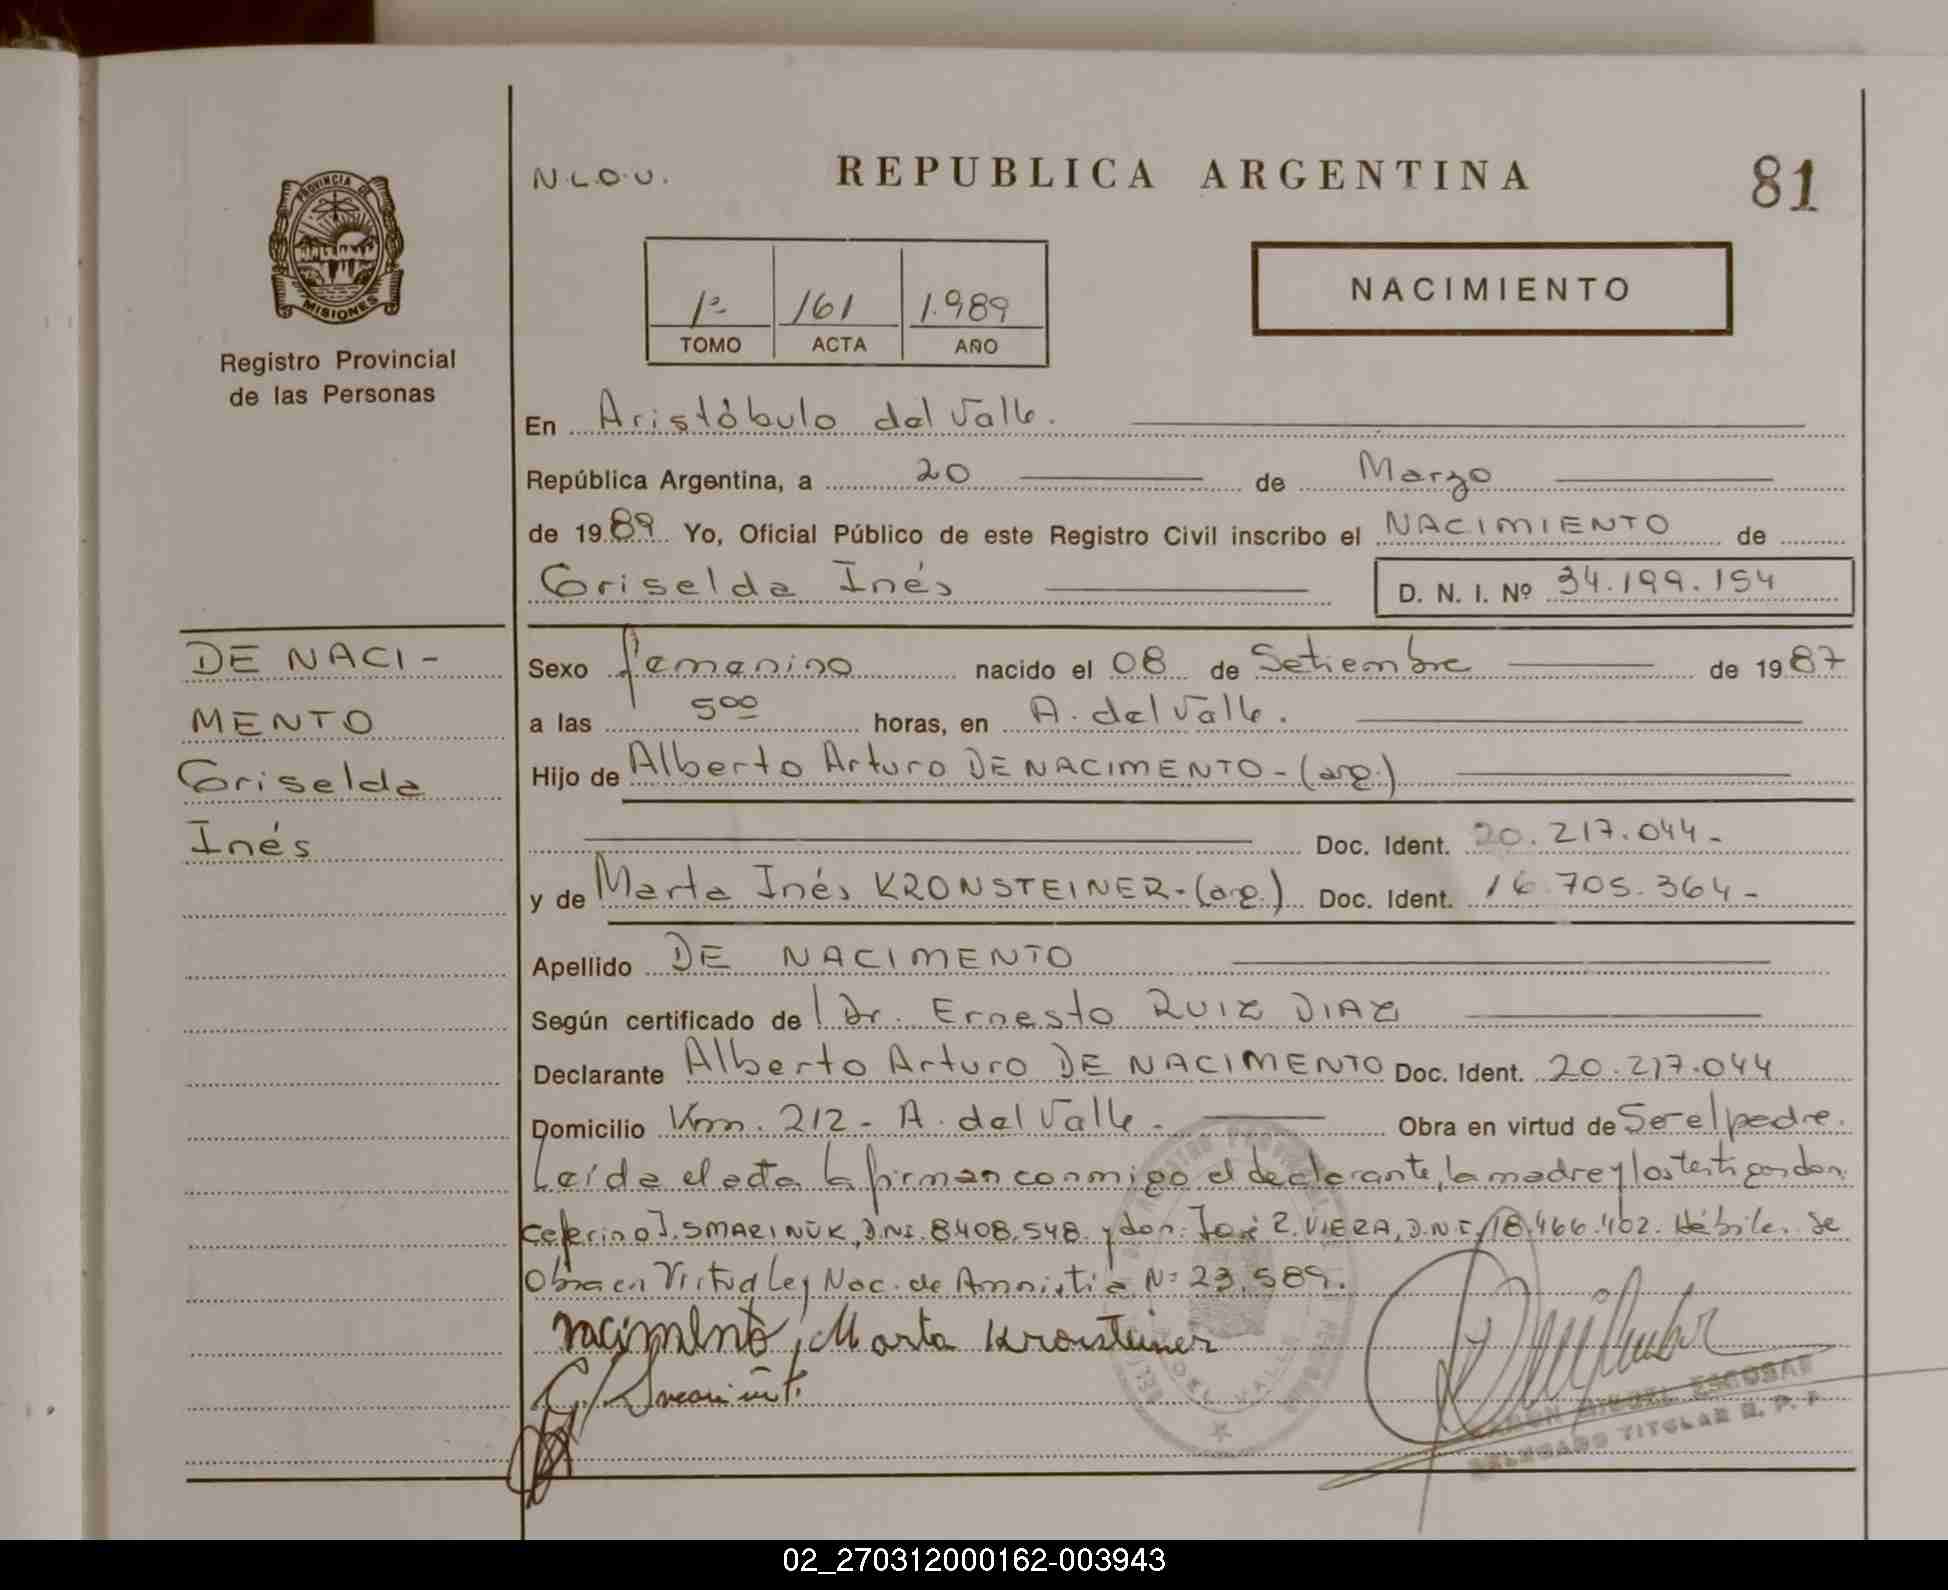 N.L.O.U.
REPUBLICA ARGENTINA
81
PROVINCIA DE
MISIONES
Registro Provincial
de las Personas
1º 161 1.989
TOMO ACTA AÑO
NACIMIENTO
En Aristóbulo del Valle.
República Argentina, a 20 de Marzo
de 1989 Yo, Oficial Público de este Registro Civil inscribo el NACIMIENTO de
Griselda Inés D. N. I. Nº 34.199.154
DE NACI-
MENTO
Griselda
Inés
Sexo femenino nacido el 08 de Setiembre de 1987
a las 5 00 horas, en A. del Valle.
Hijo de Alberto Arturo DE NACIMENTO-(arg.)
Doc. Ident. 20.217.044-
y de Marta Inés KRONSTEINER-(arg.) Doc. Ident. 16.705.364-
Apellido DE NACIMENTO
Según certificado de l Dr. Ernesto RUIZ DIAZ
Declarante Alberto Arturo DE NACIMENTO Doc. Ident. 20.217.044
Domicilio Km. 212- A. del Valle.- Obra en virtud de Ser el padre.
Leída el acta la firman conmigo el declarante, la madre y los testigos don:
Ceferino J. SMARINUK, D.N.I. 8408.548. y don: José R. VIERA, D.N.I. 18.466.402. Hábile. Se
Obra en Virtud Ley Nac. de Amnistia Nº 23.589.
nacimento, Marta Kronsteiner
RAMON MIGUEL ESCOBAR
DELEGADO TITULAR R. P. P.
DEL VALLE
02_270312000162-003943